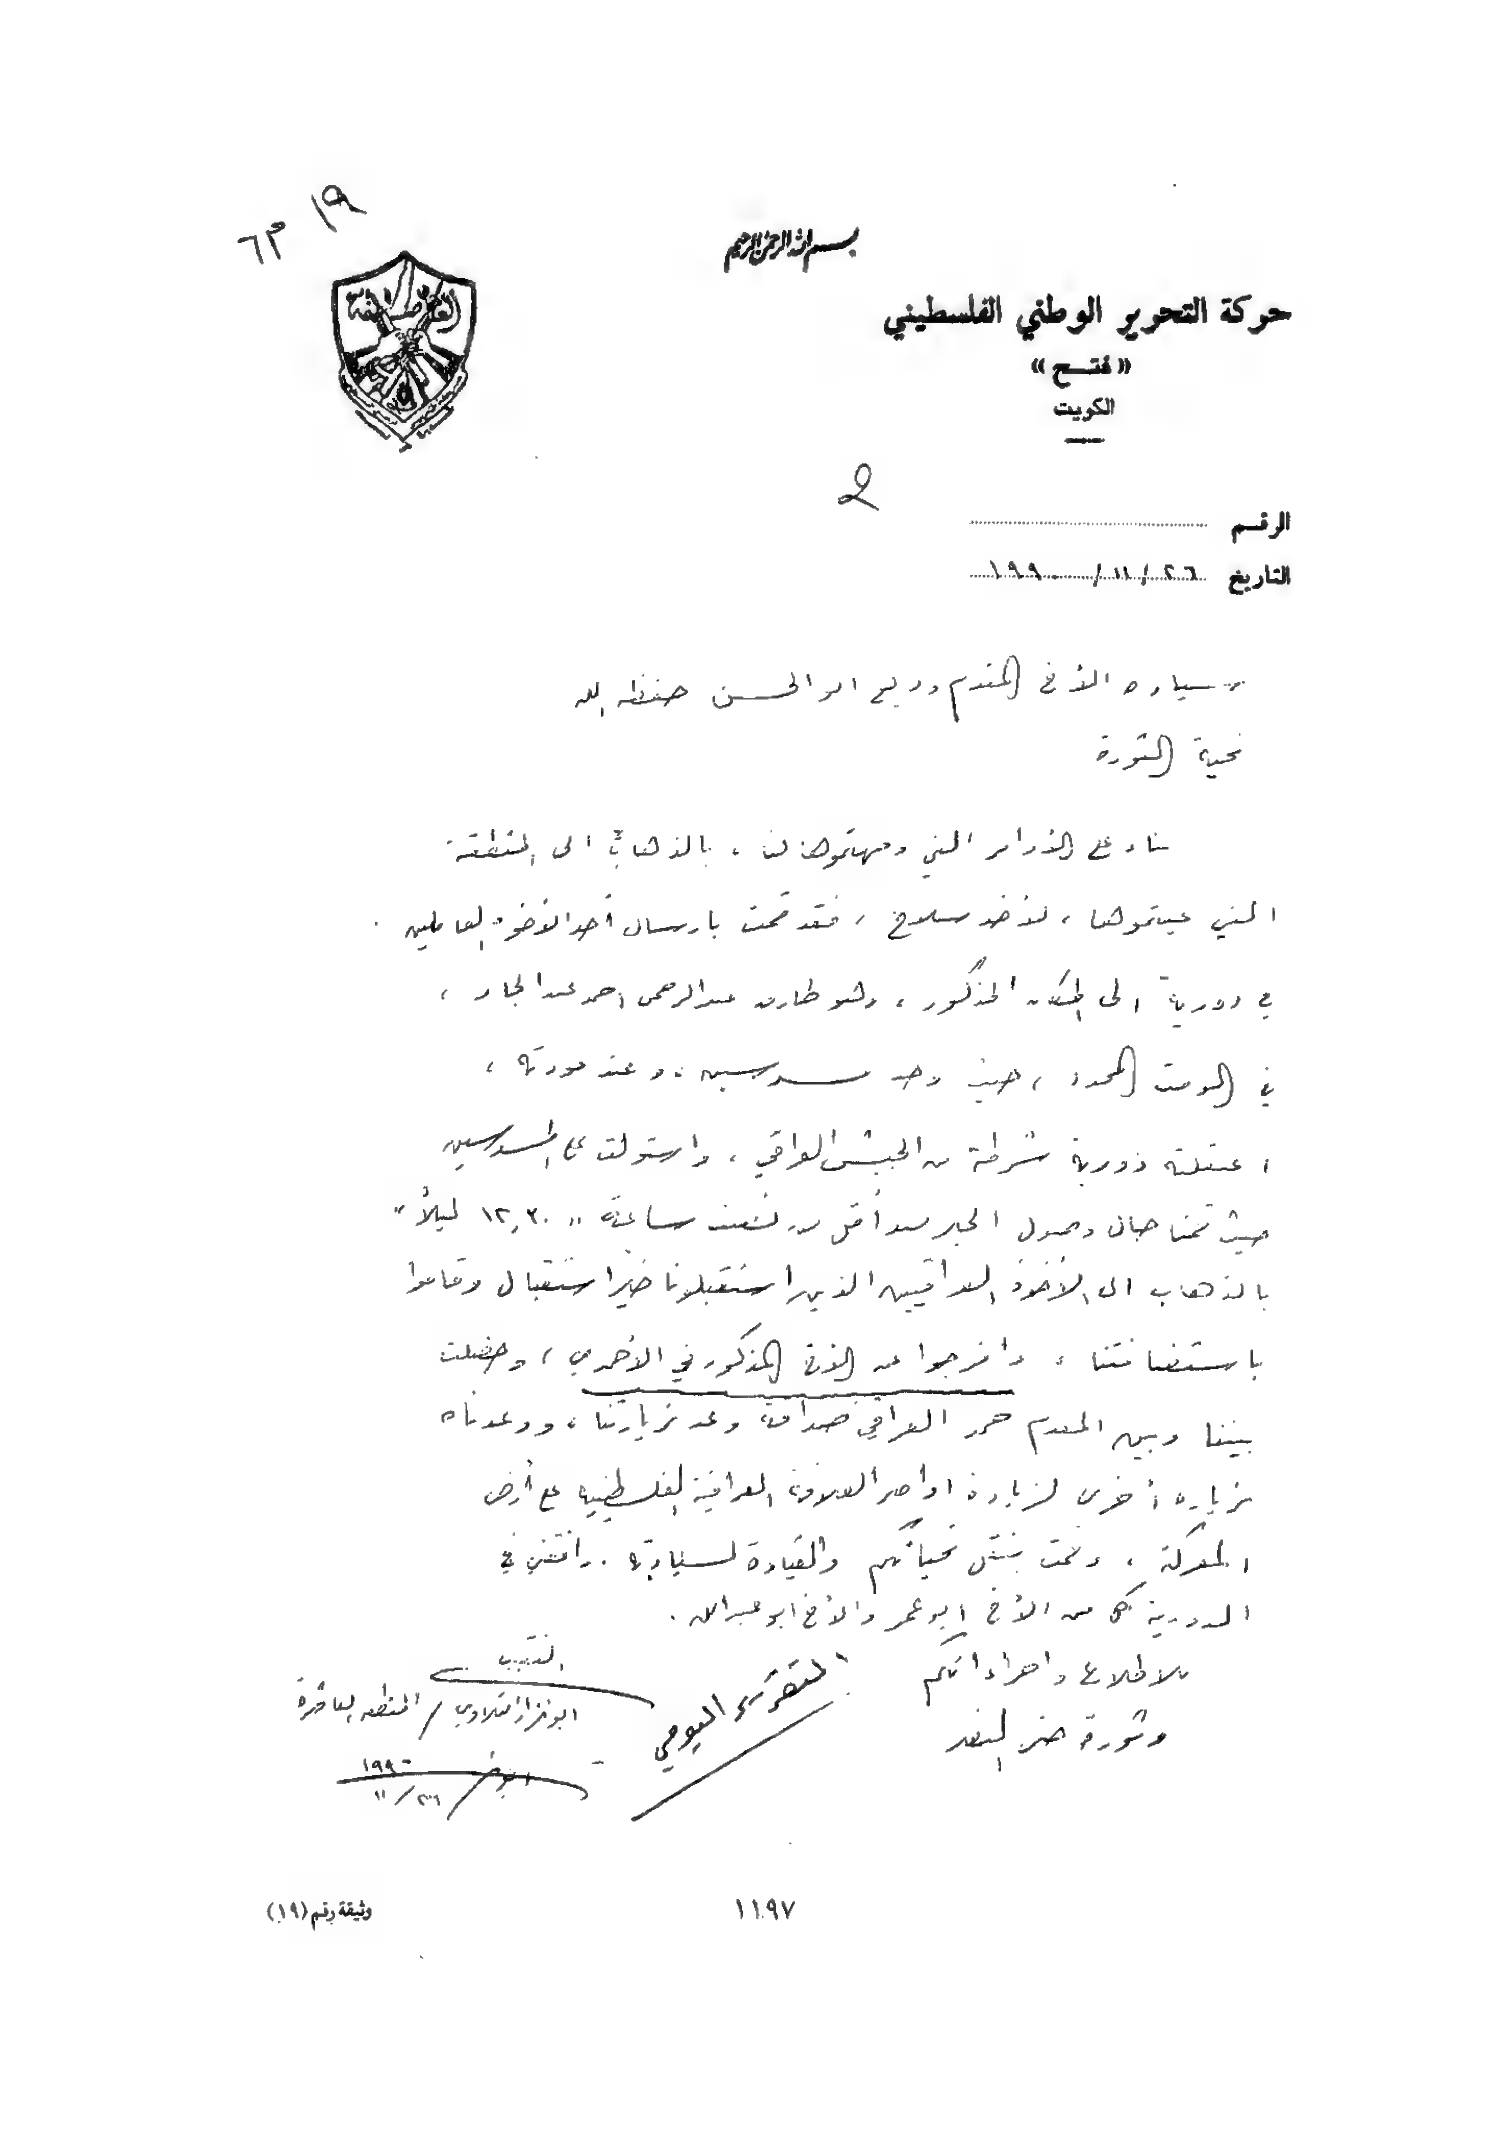 ١٩
٦٣
بسم الله الرحمن الرحيم
العاصفة
حركة التحرير الوطني الفلسطيني
« فتح »
الكويت
الرقم
التاريخ ٢٦ / ١١ / ١٩٩٠
سيادة الأخ المقدم وديع ابو الحسن حفظه الله
تحية الثورة
بناء على الأوامر التي وجهتموها لنا ، بالذهاب الى المنطقة
التي عينتموها ، لأخذ سلاح ، فقد قمت بارسال أحد الأخوة العاملين
في دورية الى المكان المذكور ، وهو طارق عبدالرحمن احمد عبد الجابر ،
في الوقت المحدد ، حيث وجد مسدسين ، وعند عودته ،
اعتقلته دورية شرطة من الجيش العراقي ، واستولت على المسدسين
حيث قمنا حال وصول الخبر بعد أقل من نصف ساعة " ١٢,٣٠ ليلاً "
بالذهاب الى الأخوة العراقيين الذين استقبلونا خير استقبال وقاموا
باستضافتنا ، وافرجوا عن الأخ المذكور في الأحمدي ، وحصلت
بيننا وبين المقدم العراقي صداقة وعد بزيارتنا ، ووعدناه
بزيارة أخرى لزيادة اواصر العلاقة العراقية الفلسطينية على أرض
المعركة ، وقمت بنقل تحياتكم والقيادة لسيادته . رافقني في
الدورية كل من الأخ ابو عمر والأخ ابو عبدالله .
للاطلاع واجراءاتكم
وثورة حتى النصر
التقرير اليومي
النقيب
ابو نزار / المنطقة العاشرة
١٩٩٠
٢٦ / ١١
١١٩٧
وثيقة رقم (١٩)